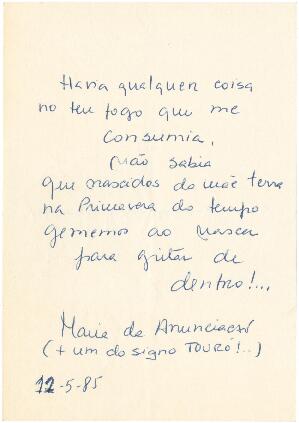 Havia qualquer coisa
no teu fogo que me
consumia.
(Não sabia
que nascidos da mãe terra
na Primavera do tempo
gememos ao nascer
para gritar de
dentro!...
Maria da Anunciação
(+ um do signo TOURO!..)
12-5-85